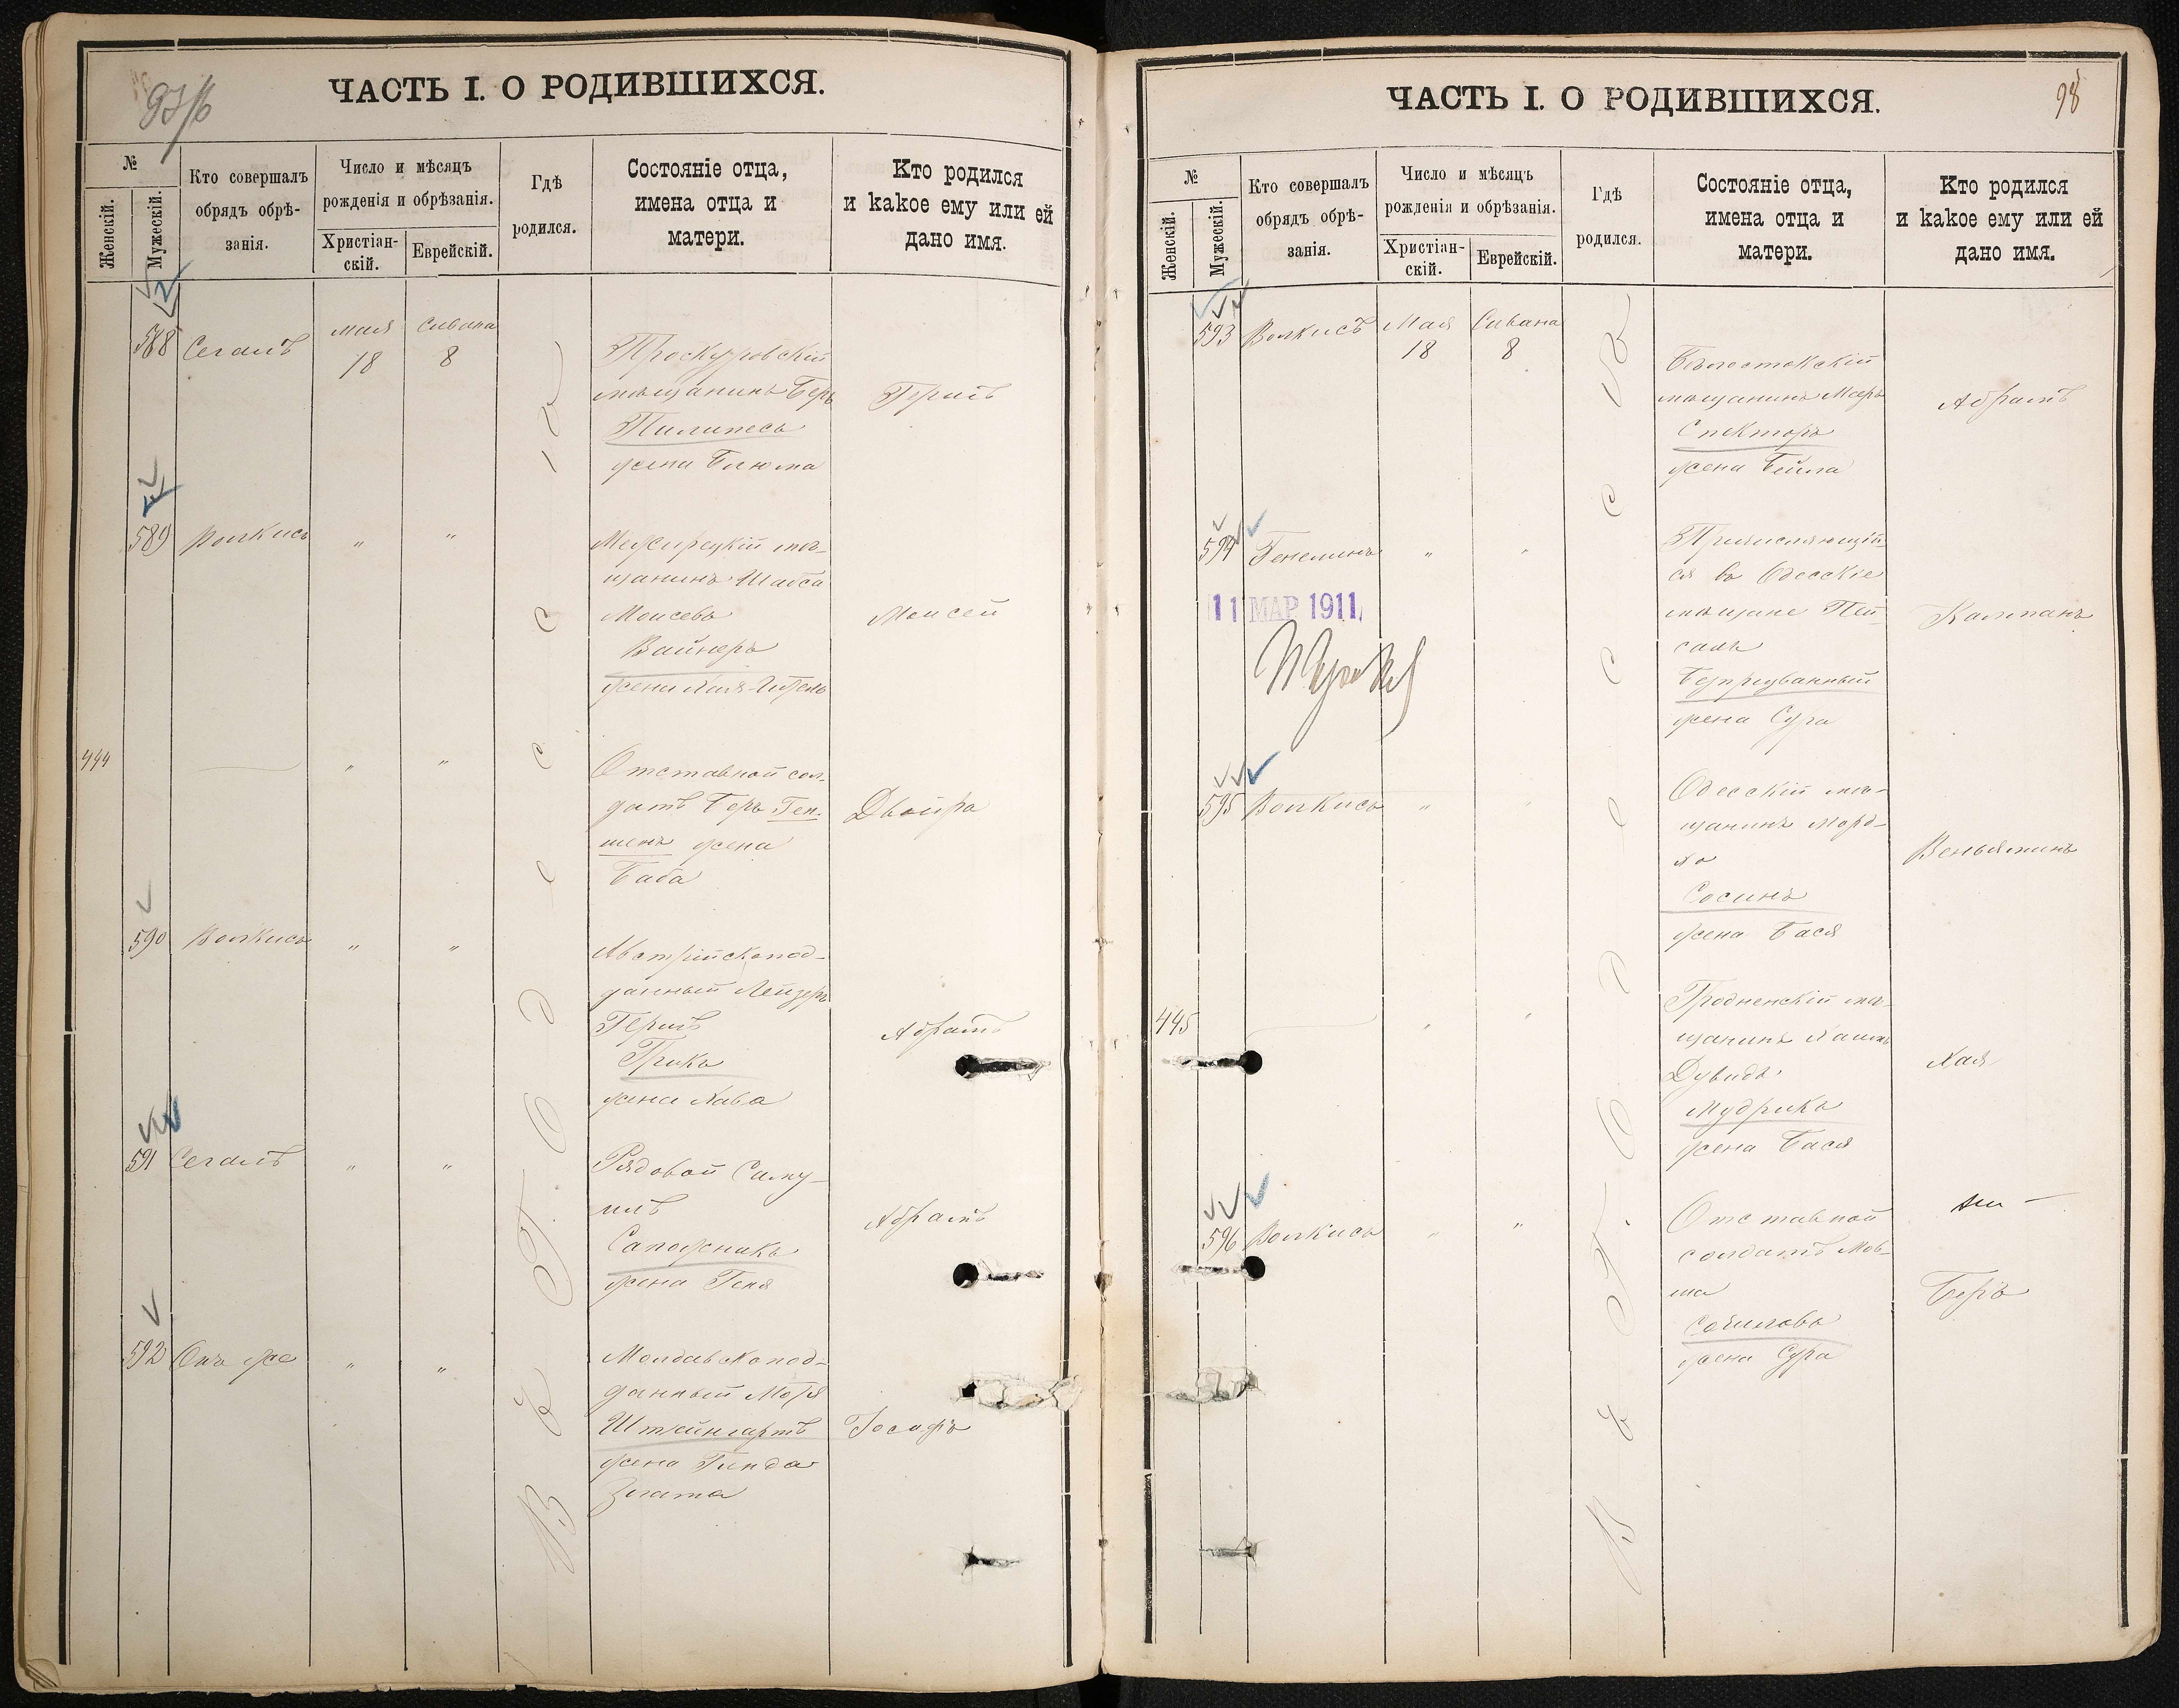 ЧАСТЬ I. О РОДИВШИХСЯ.
№
Женскій.
Мужескій.
Кто совершалъ
обрядъ обрѣ-
занія.
Число и мѣсяцъ
рожденія и обрѣзанія.
Христіан-
скій.
Еврейскій.
Гдѣ
родился.
Состояніе отца,
имена отца и
матери.
Кто родился
и какое ему или ей
дано имя.
Въ г. Одессѣ
588 Сегалъ Мая 18 Сивана 8
Проскуровскій
мѣщанинъ Беръ
Пилипесъ
жена Блюма
Гершъ
589 Волкисъ " "
Межирецкій мѣ-
щанинъ Шабса
Моисевъ
Вайнеръ
жена Хая-
Моисей
444 — " "
Отставной сол-
датъ Беръ Ген-
шенъ жена
Баба
Двойра
590 Волкисъ " "
Австрійскопод-
данный Лейзеръ
Гершъ
жена Хава
Абрамъ
591 Сегалъ " "
Рядовой Саму-
илъ
Сапожникъ
жена Геня
Абрамъ
592 Онъ же " "
Молдавскопод-
данный
Штейнгартъ
жена Гинда
Злата
Іосифъ
ЧАСТЬ I. О РОДИВШИХСЯ.
98
№
Женскій.
Мужескій.
Кто совершалъ
обрядъ обрѣ-
занія.
Число и мѣсяцъ
рожденія и обрѣзанія.
Христіан-
скій.
Еврейскій.
Гдѣ
родился.
Состояніе отца,
имена отца и
матери.
Кто родился
и какое ему или ей
дано имя.
Въ г. Одессѣ
593 Волкисъ Мая 18 Сивана 8
Бѣлостокскій
мѣщанинъ Мееръ
Спекторъ
жена Бейла
Абрамъ
594 " "
11 МАР 1911
Причисляющій-
ся въ Одесскіе
мѣщане Пей-
сахъ
Безпрозванный
жена Сура
Калманъ
595 Волкисъ " "
Одесскій мѣ-
щанинъ Морд-
ко
Сосинъ
жена Бася
Веньяминъ
445 — " "
Гродненскій мѣ-
щанинъ Хаимъ
Дувидъ
Мудрикъ
жена Бася
Хая
596 Волкисъ " "
Отставной
солдатъ Мов-
ша
жена Сура
Беръ